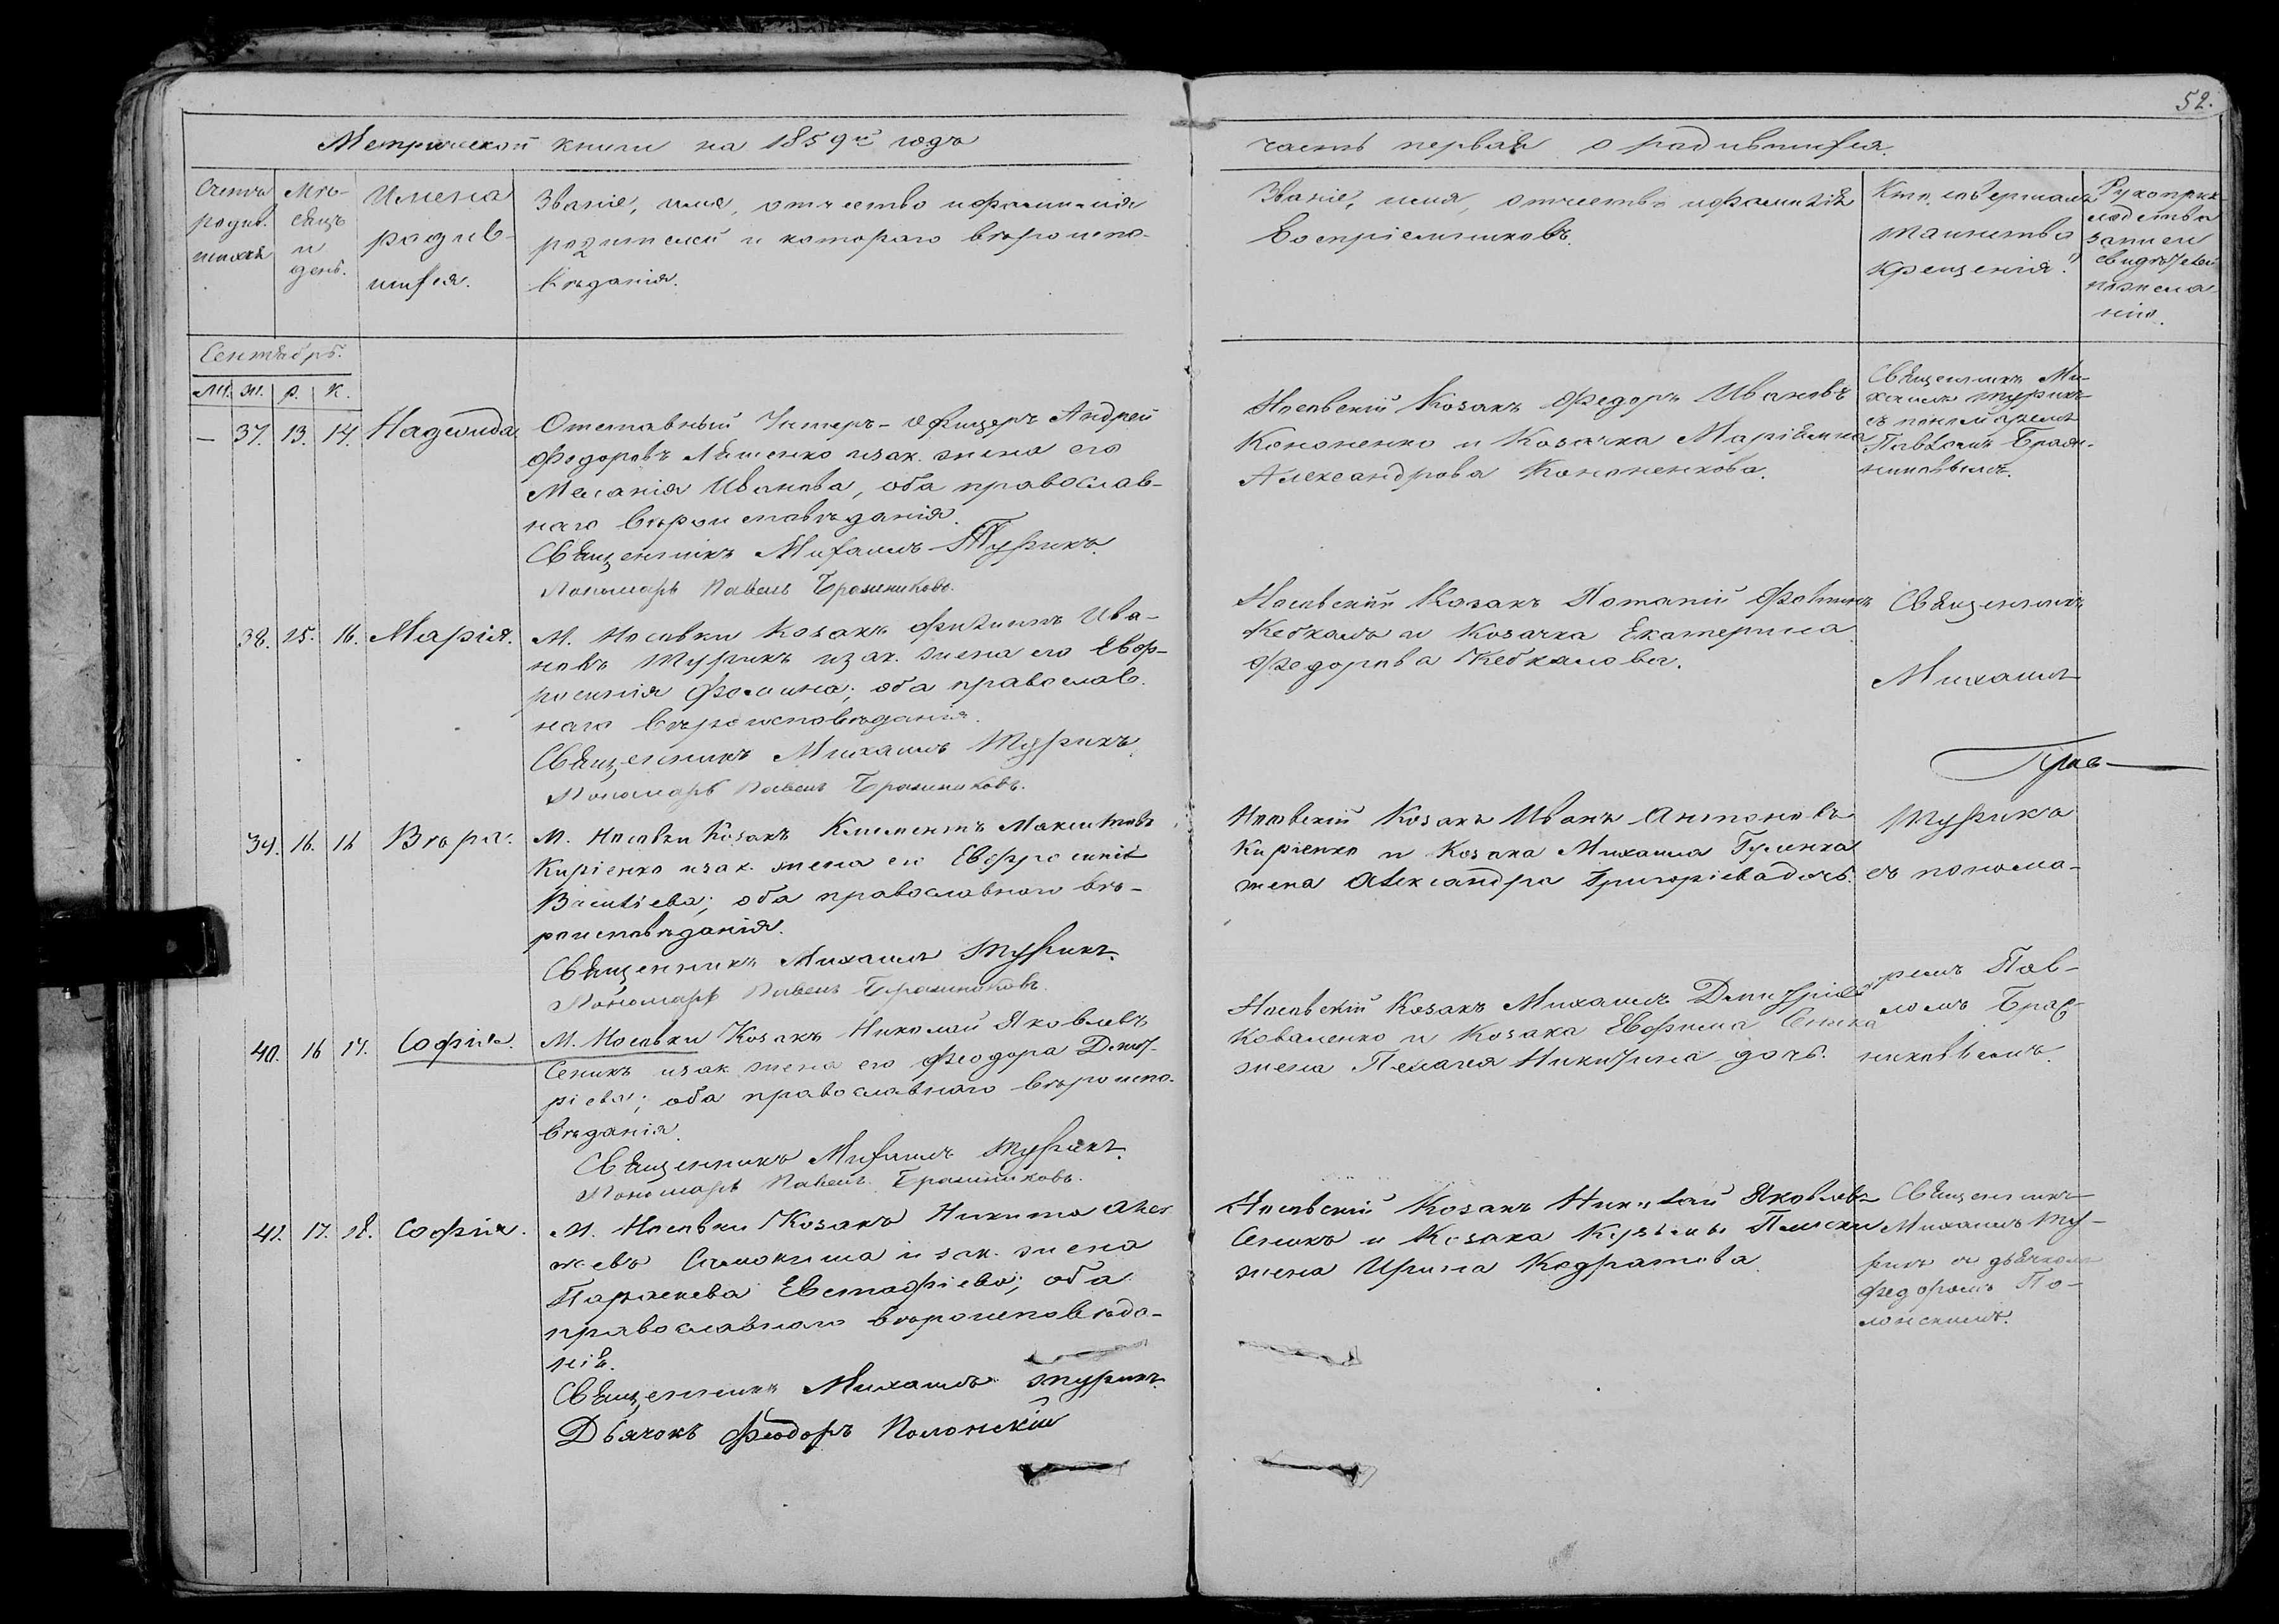 52.
Метрической книги на 1859й годъ
часть первая о родившихся.
Счетъ
родив.
шихся
Мѣ-
сяцъ
и
день.
Имена
родив-
шихся.
Званіе, имя, отчество и фамилія
родителей и котораго вѣроиспо-
вѣданія.
Званіе, имя, отчество и фамилія
Воспріемниковъ.
Кто совершалъ
таинство
крещенія?
Рукоприк-
ладства
записи
свидѣтелей
по желa-
нію.
Сентябрь.
м. ж. р. к.
— 37. 13. 14. Надежида
Отставный Унтеръ-Офицеръ Андрей
Федоровъ Ляшенко и зак. жена его
Меланія Иванова, оба православ-
наго вѣроисповѣданія.
Священникъ Михаилъ Турикъ.
Пономарь Павелъ Бражниковъ.
Носовскій Козакъ Федоръ Ивановъ
Кононенко и Козачка Маріямна
Александрова Кононенкова.
Священникъ Ми-
хаилъ Турикъ
съ пономаремъ
Павломъ Браж-
никовымъ.
38. 15. 16. Марія.
М. Носовки Козакъ Филиппъ Ива-
новъ Турикъ и зак. жена его Евф-
росинія Фомина; оба православ.
наго вѣроисповѣданія.
Священникъ Михаилъ Турикъ
Пономарь Павелъ Бражниковъ.
Носовскій Козакъ Потапій
Кебкалъ и Козачка Екатерина
Федорова Кебкалова.
Священникъ
Михаилъ
39. 16. 16 Вѣра.
М. Носовки Козакъ Климентъ Максимовъ
Киріенко и зак. жена его Евфросинія
Васильева; оба православнаго вѣ-
роисповѣданія.
Священникъ Михаилъ Турикъ.
Пономарь Павелъ Бражниковъ
Носовскій Козакъ Иванъ Антоновъ
Киріенко и Козака Михаила Гуленка
жена Александра Григоріева дочь.
Турикъ
съ понома-
40. 16 17. Софія.
М. Носовки Козакъ Николай Яковлевъ
Сеникъ и зак. жена его Феодора Дмит-
ріева; оба православнаго вѣроиспо-
вѣданія.
Священникъ Михаилъ Турикъ.
Пономарь Павелъ Бражниковъ.
Носовскій Козакъ Михаилъ Дмитріевъ
Коваленко и Козака Евфима Сеника
жена Пелагія Никитина дочь.
ремъ Пав-
ломъ Браж-
никовымъ.
41. 17. 18. Софія.
М. Носовки Козакъ Никита Алек
сѣевъ Самокиша и зак. жена
Параскева Евстафіева; оба
православнаго вѣроисповѣда-
нія.
Священникъ Михаилъ Турикъ.
Дьячокъ Феодоръ Полонскій
Носовскій Козакъ Николай Яковлевъ
Сеникъ и Козака Кузьмы
жена Ирина Кодратова
Священникъ
Михаилъ Ту-
рикъ съ дьячкомъ
Федоромъ По-
лонскимъ.